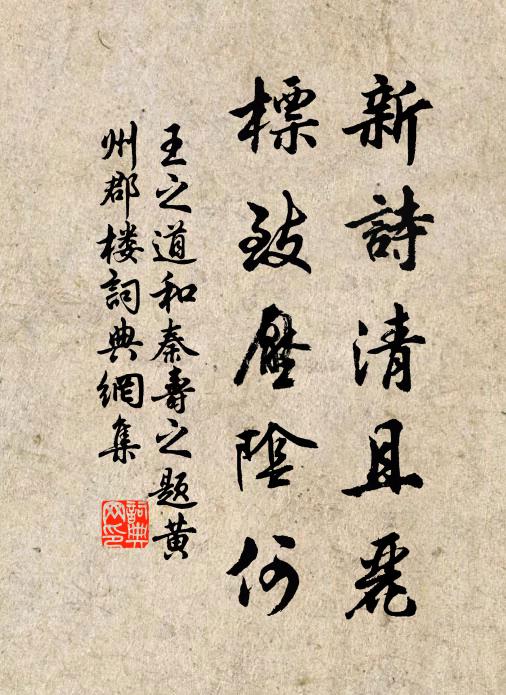 新詩清且麗
標致壓陰何
王之道和秦壽之題黄
州郡楼詞典網集
詞典
网印